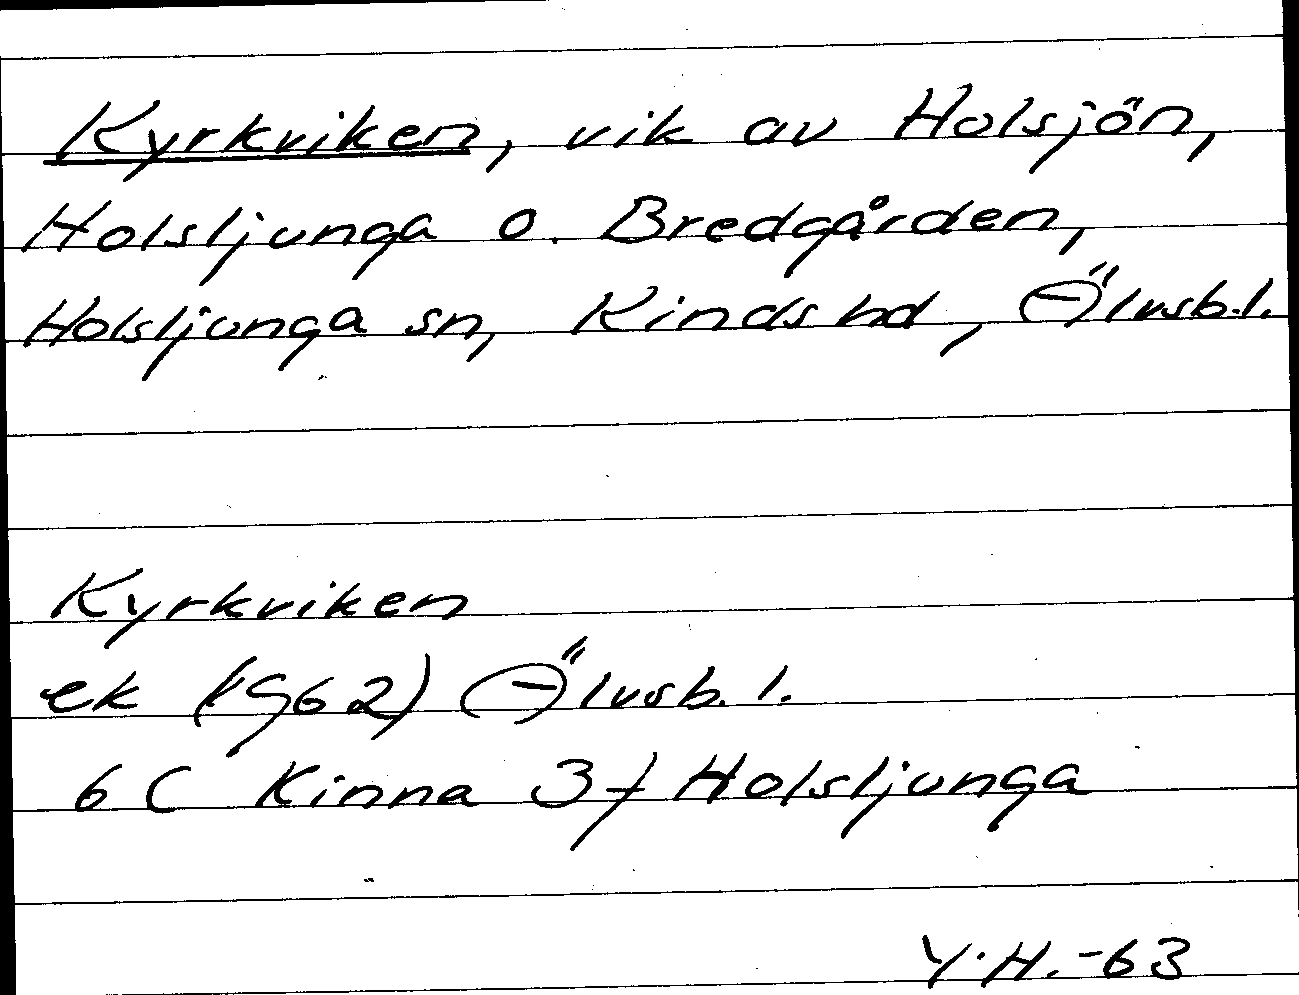 Kyrkviken, vik av Holsjön,
Holsljunga o. Bredgården,
Holsljunga sn, Kinds hd, Älvsb.l.
Kyrkviken
ek (1962) Älvsb.l.
6 C Kinna 3f Holsljunga
Y.H.-63